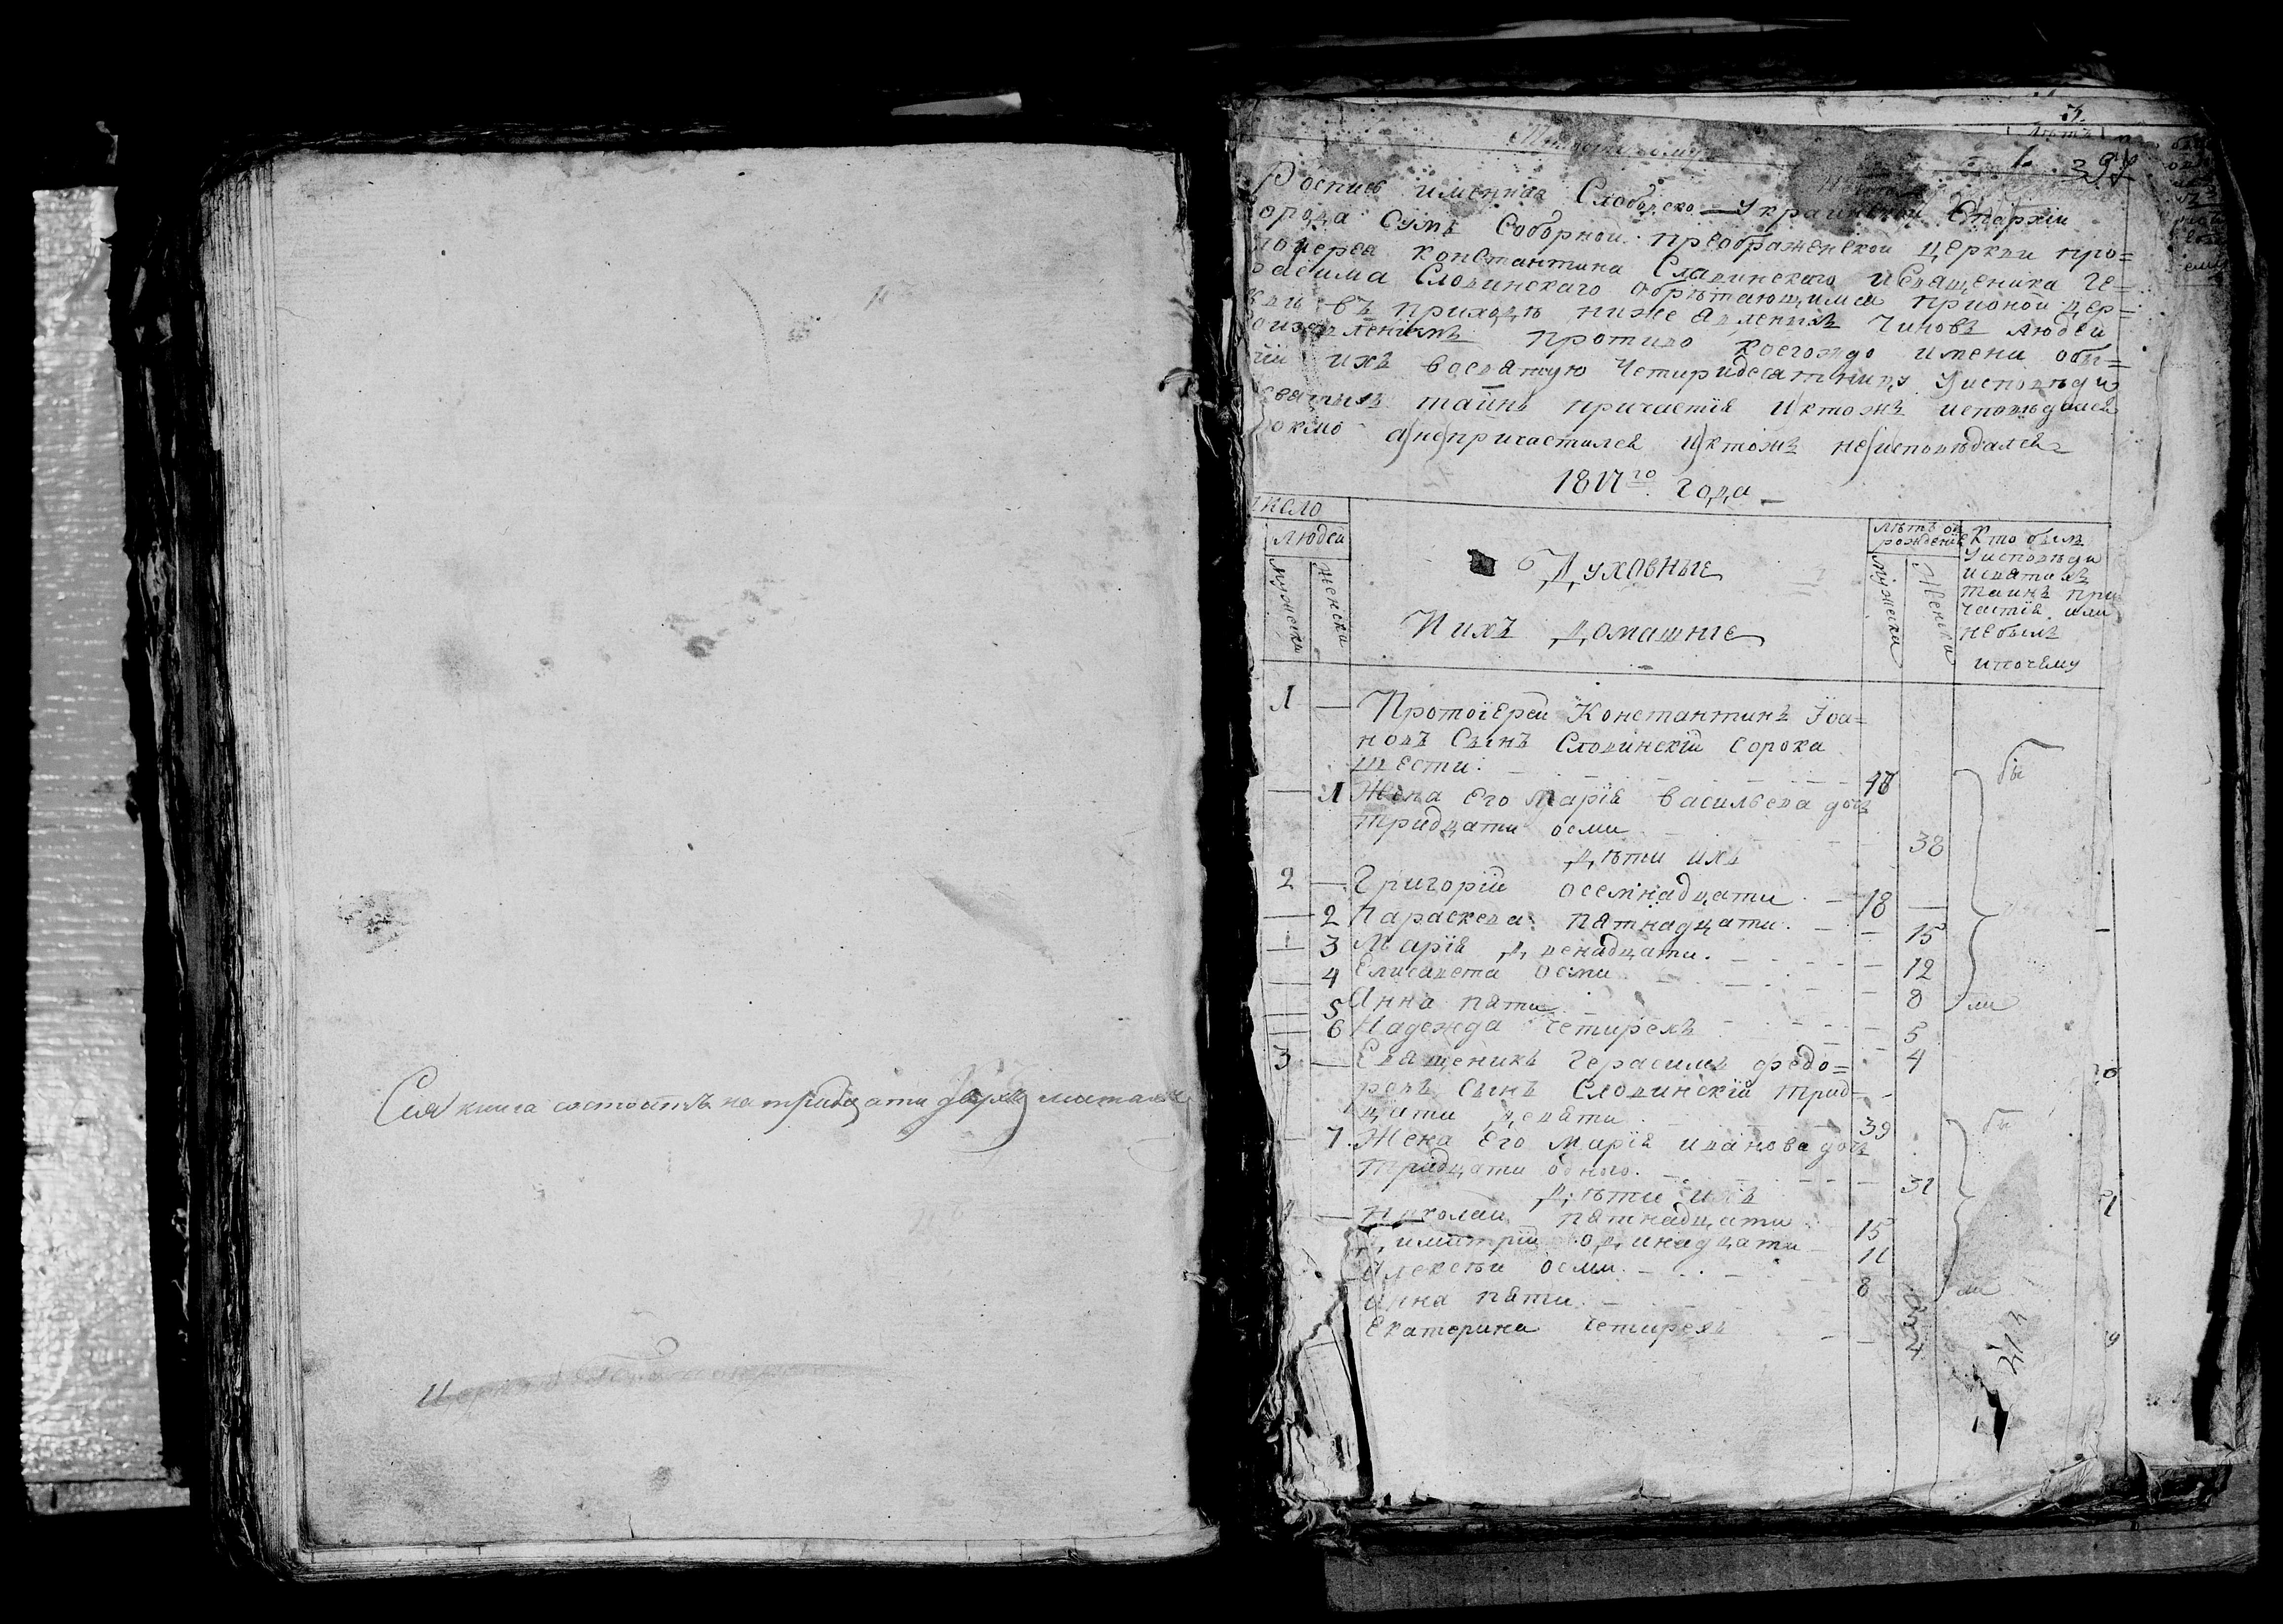 Сия книга состоитъ на тридцати листахъ
397
Роспись именная Слободско-Украинской Епархіи
орода Сумъ Соборной преображенской церкви про=
тоиерея константина Словинскаго исвященика Ге=
расима Словинскаго обрѣтающимся прионой цер=
кви въ приходѣ ниже явленныхъ чиновъ людей
соизъявленіемъ противо коегождо имени бы=
тіи ихъ восвятую четиридесятницу уисповѣди
святыхъ тайнъ причастія иктожъ исповѣдался
токмо анепричастился иктожъ неисповѣдался
1817го года
число
людей
мужеска
женска
Духовные
Иихъ домашніе
лѣтъ от
рожденія
мужеска
женска
Кто былъ
уисповѣди
исвятыхъ
таинъ при
частія или
небылъ
ипочему
1 — Протоіерей Константинъ Іоа=
новъ Сынъ Словинскій сорока
шести
— 1 Жена Его Марія васильева дочь
тридцати осми 38
Дѣти ихъ
2 — Григорій осемнадцати 18 —
— 2 Параскева пятнадцати 15
— 3 Марія двенадцати 12
4 Елисавета осми 8
5 Анна пяти 5
6 Надежда четирехъ 4
3 — Священикъ Герасимъ федо=
ровъ Сынъ Словинскій трид
цати девяти 39
7 Жена Его Марія иванова дочь
тридцати одного 31
Дѣти ихъ
— Николай пятнадцати 15
Димитрій одинадцати 11
Алексѣи осми 8
Анна пяти
Екатерина четирехъ 4
бы
ли
бы
ли